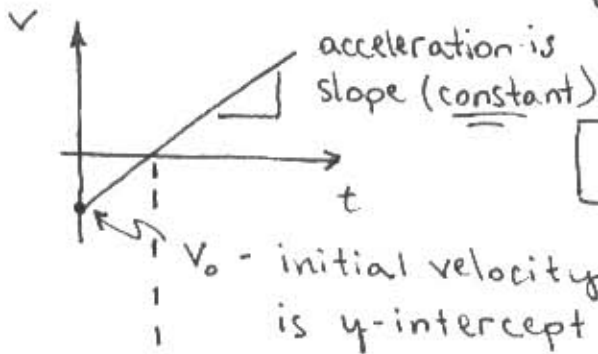 v
acceleration is
slope (constant)
t
v₀ - initial velocity
is y-intercept